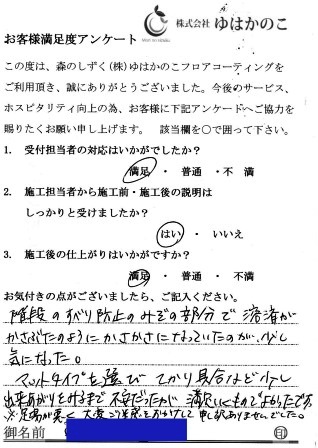 株式会社 ゆはかのこ
お客様満足度アンケート
この度は、森のしずく(株)ゆはかのこフロアコーティングを
ご利用頂き、誠にありがとうございました。今後のサービス、
ホスピタリティ向上の為、お客様に下記アンケートへご協力を
賜りたくお願い申し上げます。 該当欄を○で囲って下さい。
1. 受付担当者の対応はいかがでしたか?
満足 ・ 普通 ・不 満
2. 施工担当者から施工前・施工後の説明は
しっかりと受けましたか?
はい ・ いいえ
3. 施工後の仕上がりはいかがですか?
満足 ・ 普通 ・ 不満
お気付きの点がございましたら、ご記入ください。
階段のすべり防止のみぞの部分で溶済が
かさぶたのようにかさかさになっていたのが、少し
気になった。
マットタイプを選び てかり具合など少し
出来あがりをみるまで不安だったが 満足いくものでよかったです。
※足場が悪く 大変ご迷惑をおかけして申し訳ありませんでした。
御名前 ㊞